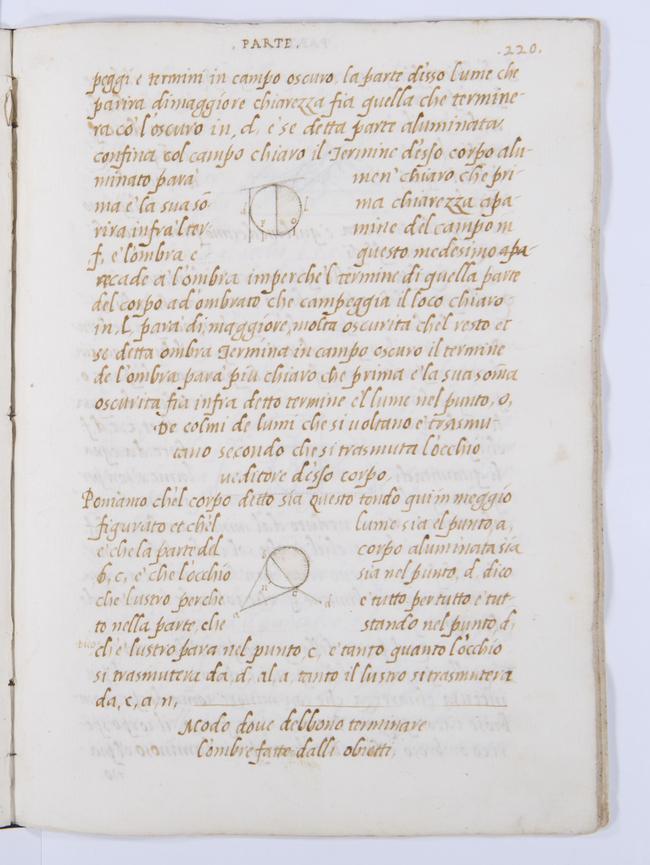 . PARTE .
.220.
peggi e termini in campo oscuro. la parte d'isso lume che
parira di maggiore chiarezza fia quella che termine-
ra co l'oscuro in, d, e se detta parte aluminata
confina col campo chiaro il Termine d'esso corpo alu-
minato para men' chiaro che pri-
ma e la sua só- ma chiarezza apa-
rira infra'l ter- mine del campo m
f, e l'ombra e questo medesimo apa-
recade a l'ombra imperche'l termine di quella parte
del corpo ad'ombrato che campeggia il loco chiaro
in, l, para di, maggiore, molta oscurita ch'el resto et
se detta ombra Termina in campo oscuro il termine
de l'ombra para piu chiaro che prima e la sua som̃a
oscurita fia infra detto termine e'l lume nel punto, o,
De colmi de lumi che si voltano e trasmu
tano secondo che si trasmuta l'occhio
veditore d'esso corpo,
Poniamo ch'el corpo ditto sia questo tondo qui in meggio
figurato et ch'el lume sia el punto, a,
e che la parte del corpo aluminata sia
b, c, e che l'occhio sia nel punto, d, dico
che lustro perche e tutto per tutto e tut-
to nella parte, che stando nel punto, d,
ch'e lustro para nel punto, c, e tanto quanto l'occhio
si trasmutera da, d, al, a, tanto il lustro si trasmutera
da, c, a, n,
Modo dove debbono terminare
l'ombre fatte dalli obietti,